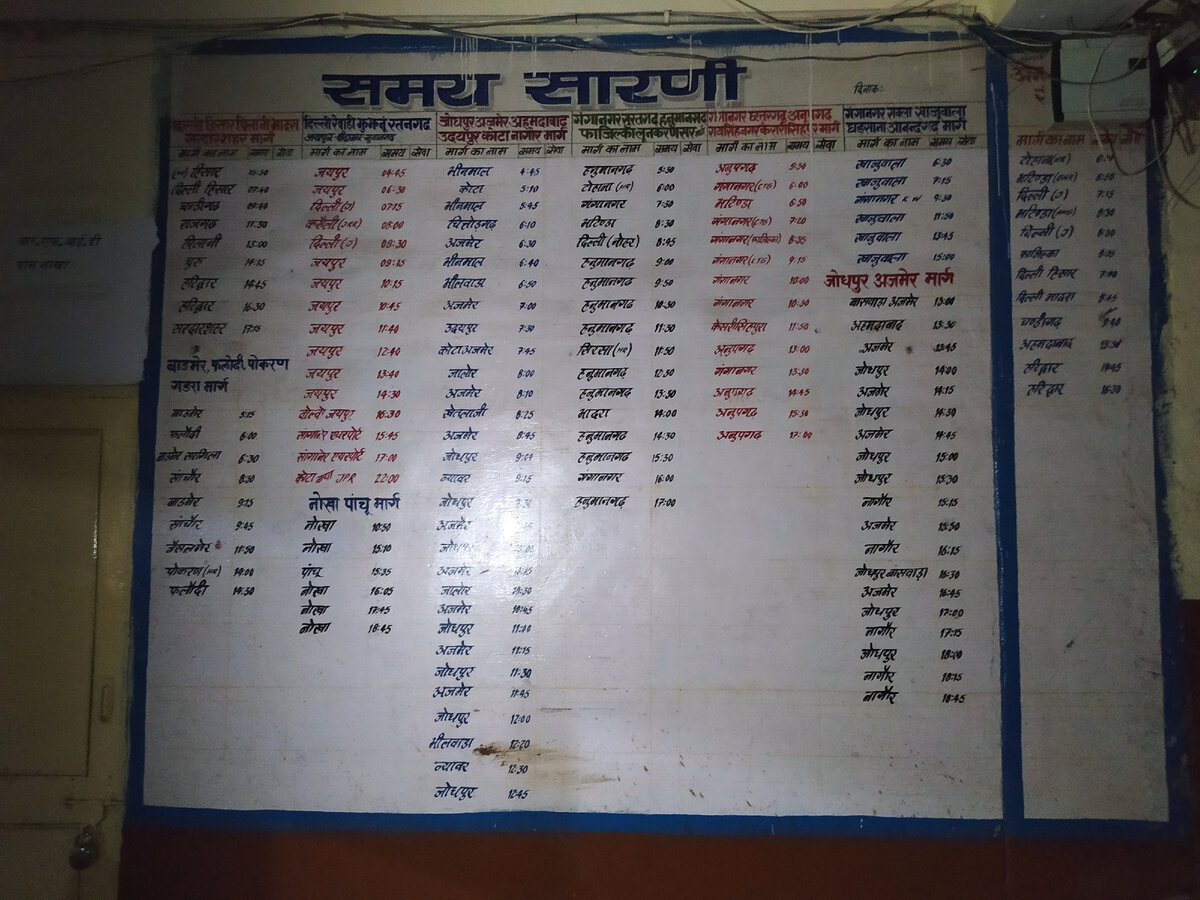 समय सारणी
दिनांक:-
दिल्ली रेवाड़ी झुंझनूं रतनगढ़
जोधपुर अजमेर अहमदाबाद
उदयपुर कोटा नागौर मार्ग
गंगानगर सूरतगढ़ हनुमानगढ़
गंगानगर रावला खाजुवाला
घड़साना आनन्दगढ़ मार्ग
मार्ग का नाम समय सेवा
हिसार
दिल्ली हिसार 07:40
चन्डीगढ 09:40
राजगढ 11:30
पिलानी 13:00
चुरू 14:15
हरिद्वार 14:45
हरिद्वार 16:30
सरदारशहर 17:15
बाडमेर, फलोदी, पोकरण
गडरा मार्ग
बाडमेर 5:15
फलौदी 6:00
6:30
सांचौर 8:30
बाडमेर 9:15
सांचौर 9:45
जैसलमेर 11:30
पोकरण (MR) 14:00
फलौदी 14:30
मार्ग का नाम समय सेवा
जयपुर 04:45
जयपुर 06:30
दिल्ली (J) 07:15
08:00
दिल्ली (J) 08:30
जयपुर 09:15
जयपुर 10:15
जयपुर 10:45
जयपुर 11:40
जयपुर 12:40
जयपुर 13:40
जयपुर 14:30
16:30
सांगानेर एयरपोर्ट 15:45
सांगानेर एयरपोर्ट 17:00
कोटा JPR 22:00
नोखा पांचू मार्ग
नोखा 10:50
नोखा 15:10
पांचू 15:35
नोखा 16:05
नोखा 17:45
नोखा 18:45
मार्ग का नाम समय सेवा
भीनमाल 4:45
कोटा 5:10
भीनमाल 5:45
चितोड़गढ़ 6:10
अजमेर 6:30
भीनमाल 6:40
भीलवाडा 6:50
अजमेर 7:00
उदयपुर 7:30
कोटा अजमेर 7:45
जालोर 8:00
अजमेर 8:10
खेतलाजी 8:25
अजमेर 8:45
जोधपुर
ब्यावर 9:15
जोधपुर
अजमेर
जोधपुर
अजमेर
जालोर
अजमेर 10:45
जोधपुर 11:00
अजमेर 11:15
जोधपुर 11:30
अजमेर 11:45
जोधपुर 12:00
भीलवाडा 12:20
ब्यावर 12:30
जोधपुर 12:45
मार्ग का नाम समय सेवा
हनुमानगढ 5:30
टोहाना (HR) 6:00
गंगानगर 7:30
भटिण्डा 8:30
दिल्ली (नोहर) 8:45
हनुमानगढ 9:00
हनुमानगढ 9:50
हनुमानगढ 10:30
हनुमानगढ 11:30
सिरसा (HR) 11:50
हनुमानगढ 12:30
हनुमानगढ 13:30
भादरा 14:00
हनुमानगढ 14:30
हनुमानगढ 15:30
गंगानगर 16:00
हनुमानगढ़ 17:00
मार्ग का नाम समय सेवा
अनुपगढ 5:30
गंगानगर (CTG) 6:00
भटिण्डा 6:50
गंगानगर (CTG) 7:20
गंगानगर (फाजिल्का) 8:35
गंगानगर (CTG) 9:15
गंगानगर 10:00
गंगानगर 10:30
केसरीसिंहपुरा 11:50
अनुपगढ 13:00
गंगानगर 13:30
अनुपगढ 14:45
अनुपगढ 15:30
अनुपगढ 17:00
मार्ग का नाम समय सेवा
खाजुवाला 6:30
खाजुवाला 7:15
गंगानगर K W 9:30
खाजुवाला 11:50
खाजुवाला 13:45
खाजुवाला 15:00
जोधपुर अजमेर मार्ग
बासवाडा अजमेर 13:00
अहमदाबाद 13:30
अजमेर 13:45
जोधपुर 14:00
अजमेर 14:15
जोधपुर 14:30
अजमेर 14:45
जोधपुर 15:00
जोधपुर 15:30
नागौर 15:15
अजमेर 15:50
नागौर 16:15
जोधपुर बांसवाड़ा 16:30
अजमेर 16:45
जोधपुर 17:00
नागौर 17:15
जोधपुर 18:00
नागौर 18:15
नागौर 18:45
मार्ग का नाम
टोहाना (HR)
भटिण्डा 6:50
दिल्ली (J) 7:15
भटिण्डा 8:30
दिल्ली (J) 8:30
फाजिल्का 8:35
दिल्ली हिसार 7:40
दिल्ली भादरा 8:45
चण्डीगढ 9:40
अहमदाबाद 13:30
हरिद्वार 14:45
हरिद्वार 16:30
आर.एफ.आई.डी
पास शाखा